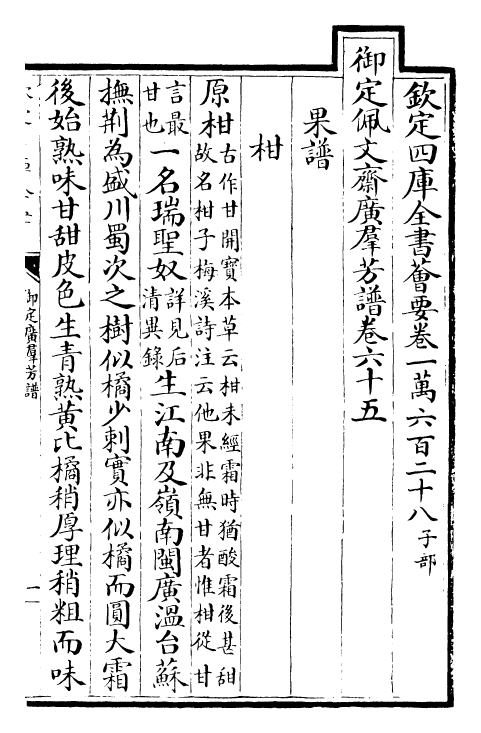 欽定四庫全書薈要卷一萬六百二十八子部
御定佩文齋廣羣芳譜卷六十五
果譜
柑
原柑古作甘開寶本草云柑未經霜時猶酸霜後甚甜故名柑子梅溪詩注云他果非無甘者惟柑從甘
言最甘也一名瑞聖奴詳見后清異錄生江南及嶺南閩廣溫台蘇
撫荆為盛川蜀次之樹似橘少刺實亦似橘而圓大霜
後始熟味甘甜皮色生青熟黃比橘稍厚理稍粗而味
御定廣羣芳譜
一